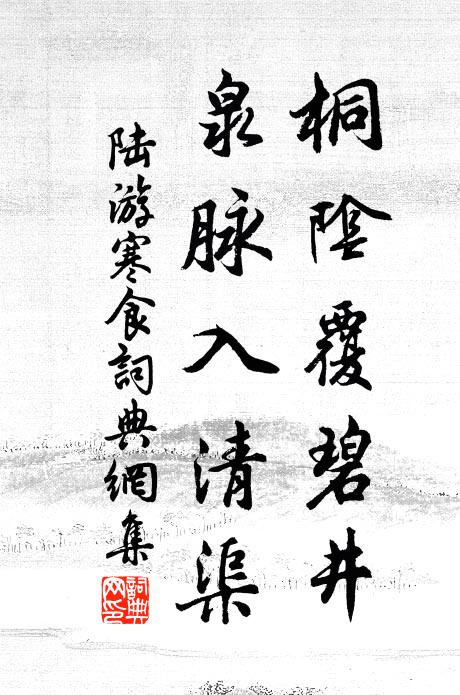 桐陰覆碧井
泉脉入清渠
陆游寒食詞典網集
詞典网印